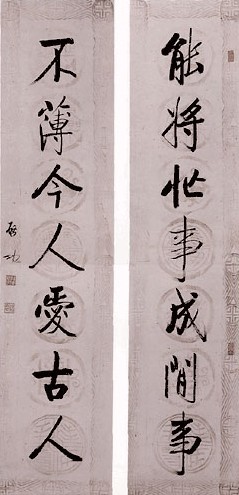 能将忙事成閒事
不薄今人爱古人
启功